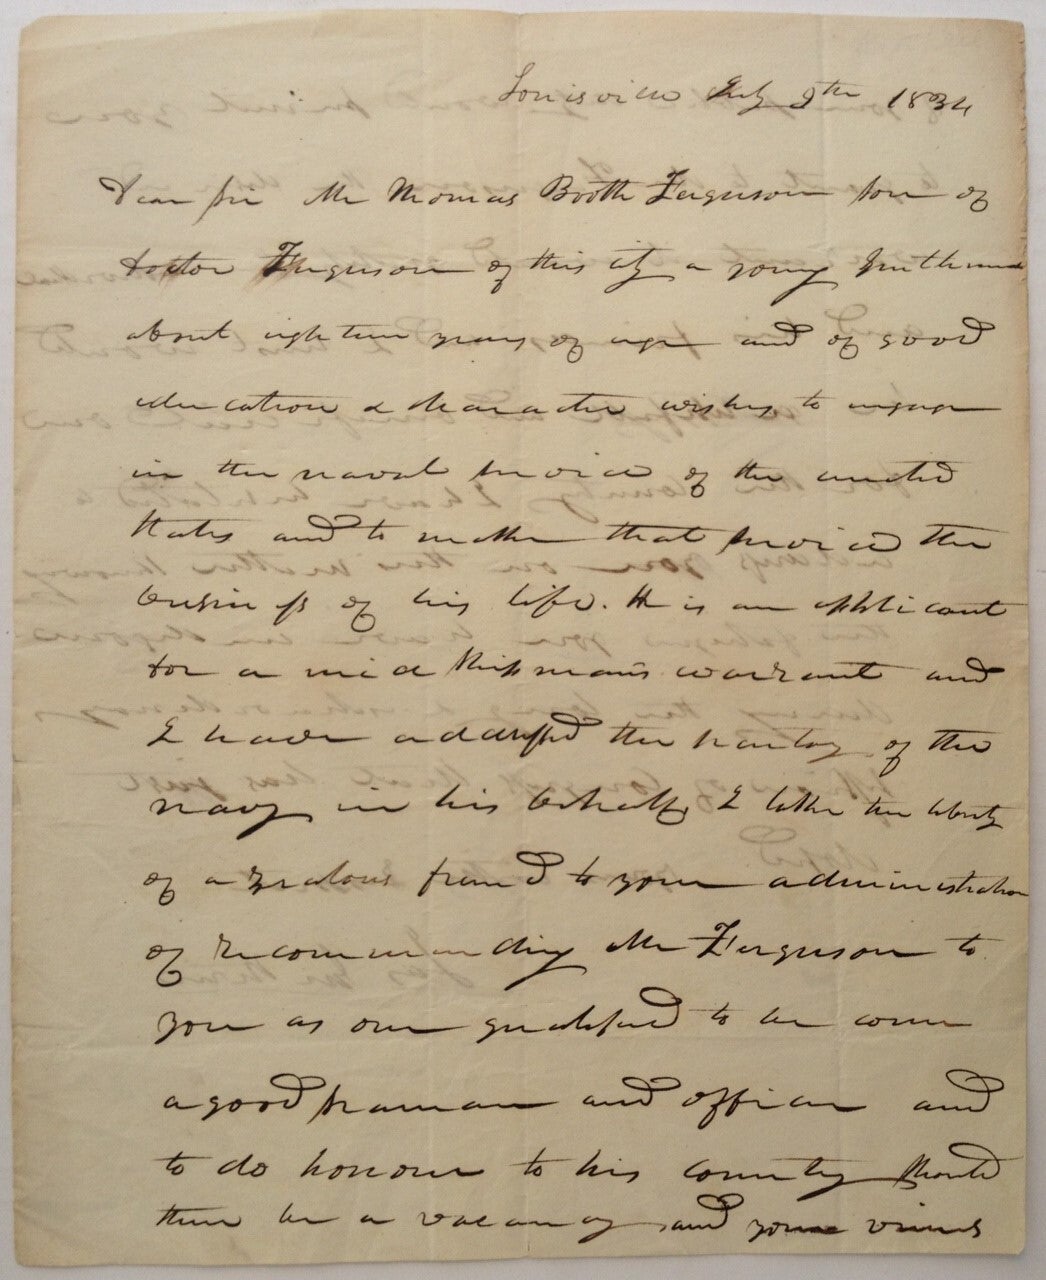 Louisville July 9th 1834
Dear Sir Mr Thomas Booth Ferguson son of
doctor Ferguson of this city a young gentleman
about eighteen years of age and of good
education & character wishes to engage
in the naval service of the united
States and to make that service the
business of his life. He is an applicant
for a midshipman's warrant and
I have addressed the Secretary of the
navy in his behalf, I take the liberty
of a zealous friend to your administration
of recommending Mr Ferguson to
you as one qualified to become
a good seaman and officer and
to do honour to his country should
there be a vacancy and your views